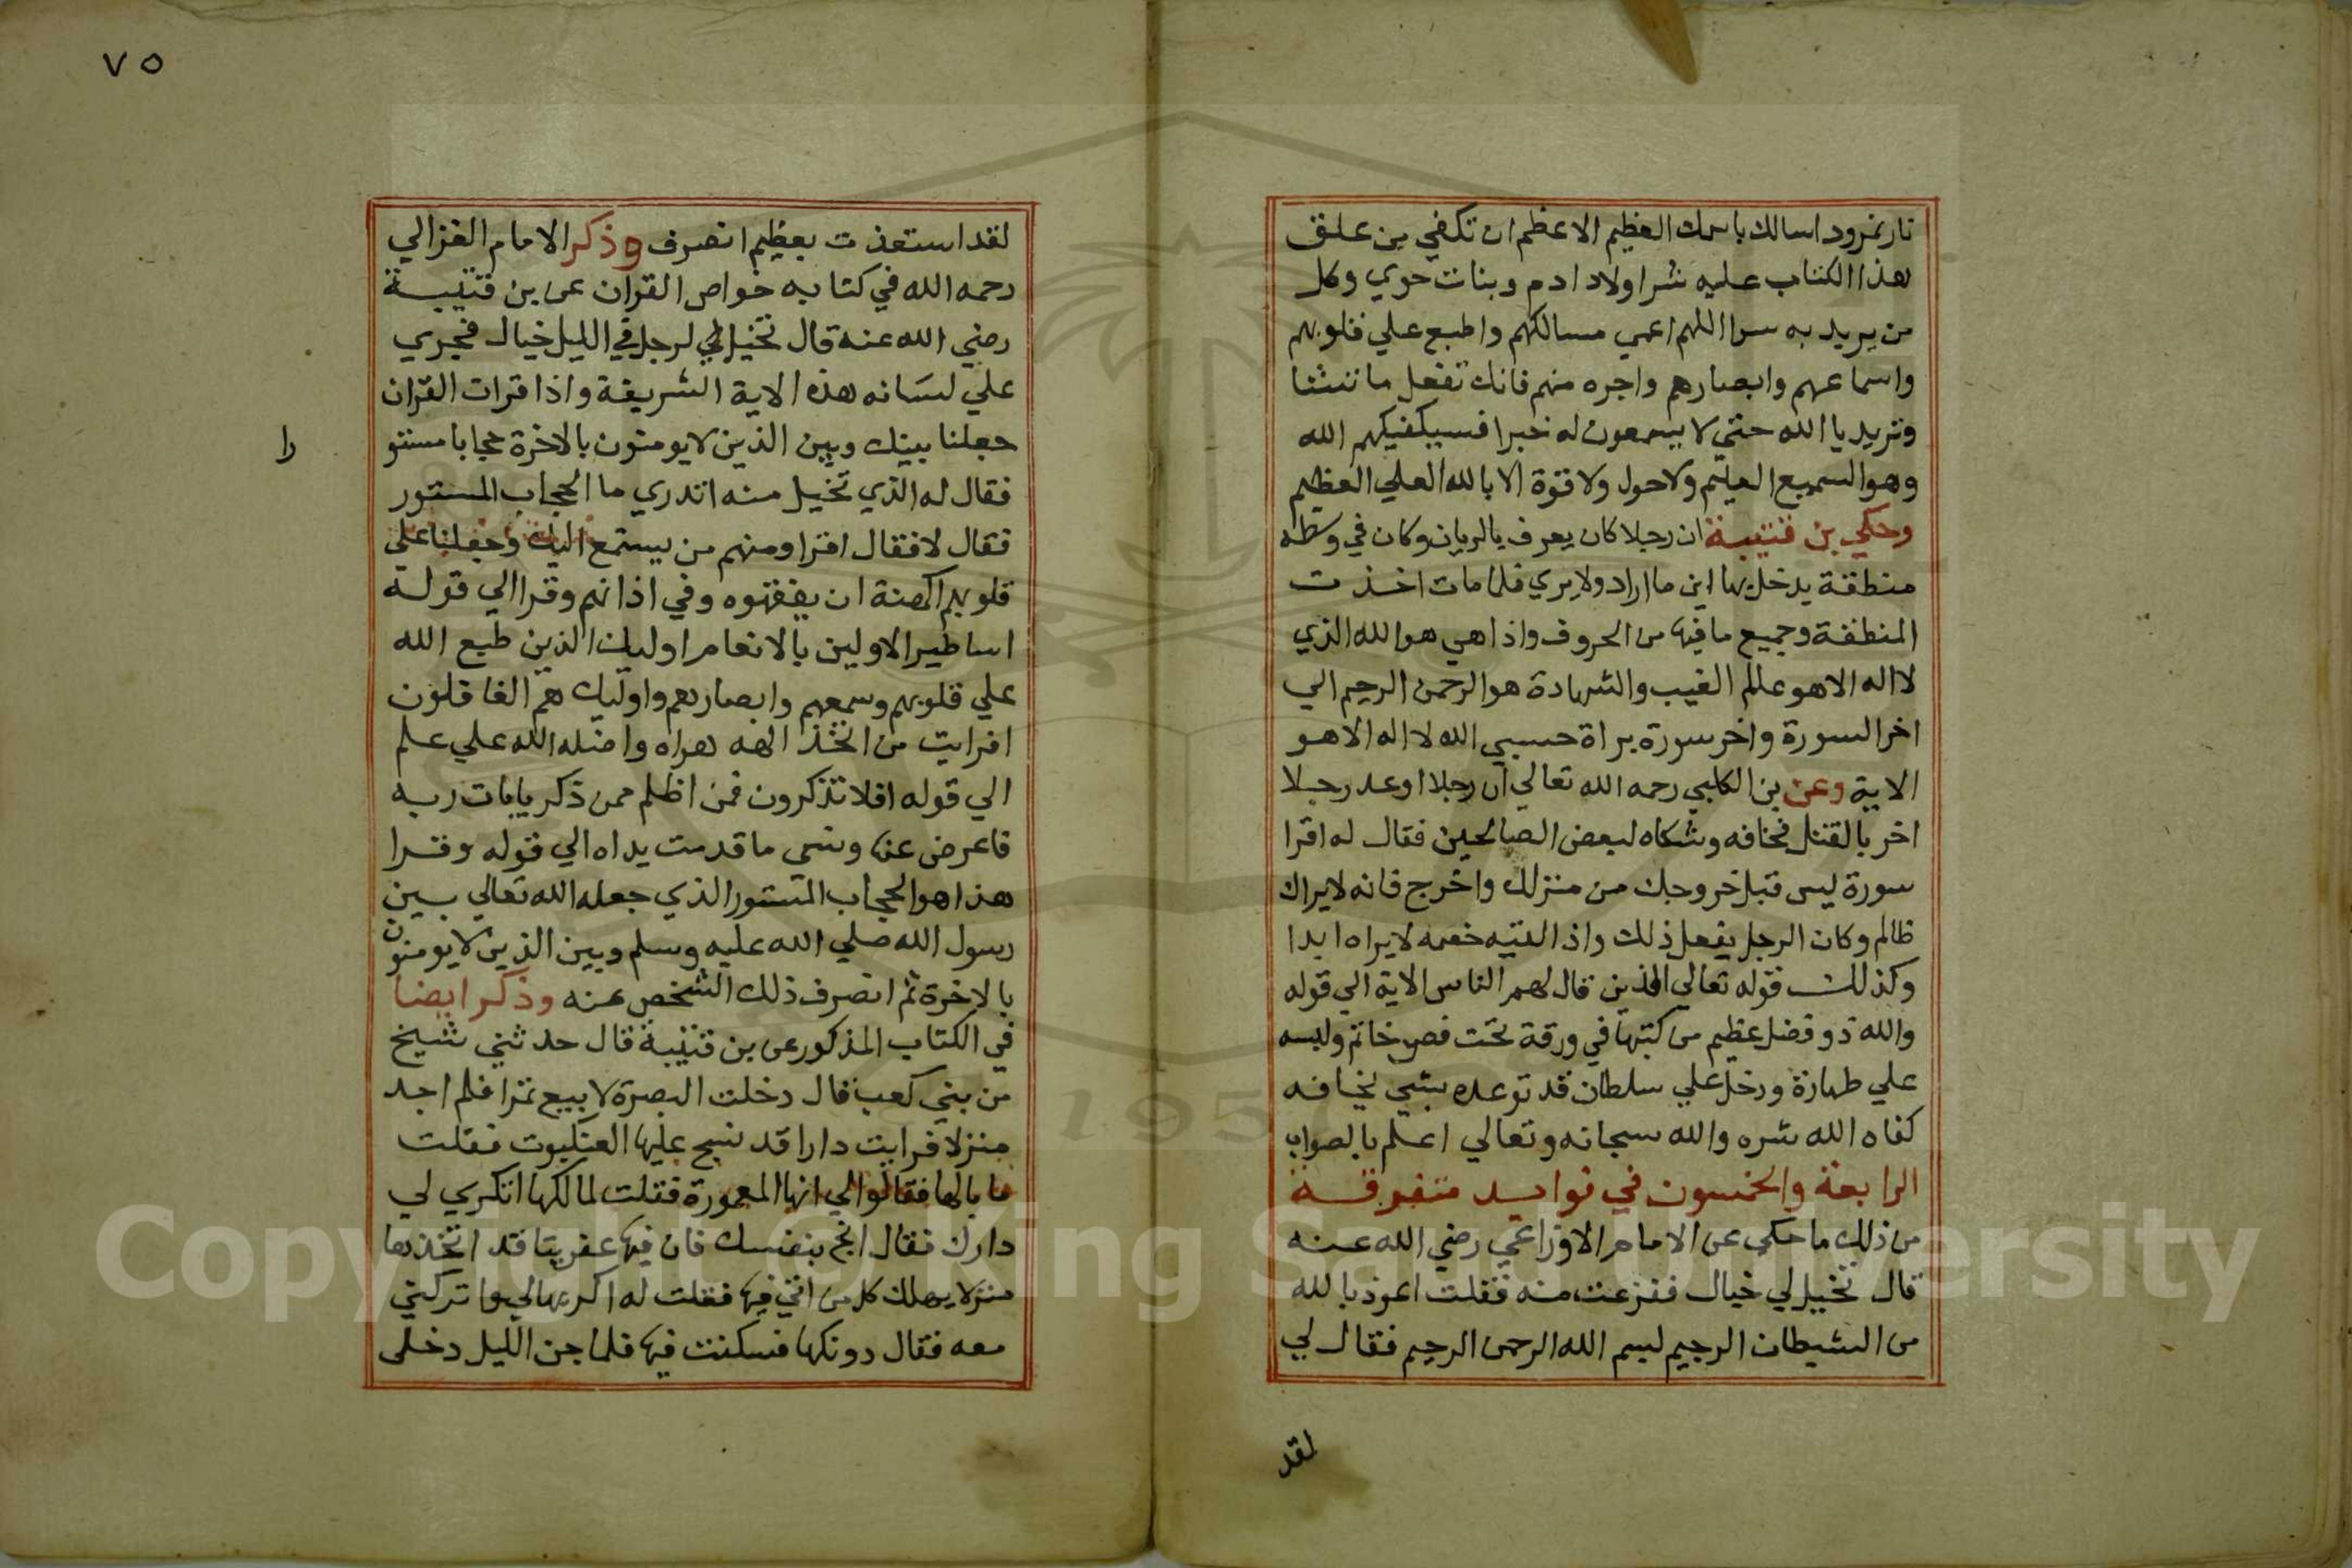 نار نمرود اسالك باسمك العظيم الاعظم ان تكفي من علق
هذا الكتاب عليه شر اولاد ادم وبنات حوي وكل
من يريد به سوا اللهم اعمي مسالكهم واطبع علي قلوبهم
واسماعهم وابصارهم واجره منهم فانك تفعل ما تشا
وتريد يا الله حتي لا يسمعون له خبرا فسيكفيكهم الله
وهو السميع العليم ولا حول ولا قوة الا بالله العلي العظيم
وحكي بن قتيبة ان رجلا كان يعرف بالريان وكان في وسطه
منطقة يدخل بها اين ما اراد ولا يري فلما مات اخذت
المنطقة وجميع ما فيها من الحروف واذا هي هو الله الذي
لا اله الا هو علم الغيب والشهادة هو الرحمن الرحيم الي
اخر السورة واخر سورة براة حسبي الله لا اله الا هو
الاية وعن بن الكلبي رحمه الله تعالي ان رجلا اوعد رجلا
اخر بالقتل فخافه وشكاه لبعض الصالحين فقال له اقرا
سورة يس قبل خروجك من منزلك واخرج فانه لا يراك
ظالم وكان الرجل يفعل ذلك واذا لقيه خصمه لا يراه ابدا
وكذلك قوله تعالي الذين قال لهم الناس الاية الي قوله
والله ذو فضل عظيم من كتبها في ورقة تحت فص خاتم ولبسه
علي طهارة ودخل علي سلطان قد توعده بشي يخافه
كفاه الله شره والله سبحانه وتعالي اعلم بالصواب
الرابعة والخمسون في فوايد متفرقة
من ذلك ما حكي عن الامام الاوزاعي رضي الله عنه
قال تخيل لي خيال ففزعت منه فقلت اعوذ بالله
من الشيطان الرجيم لبسم الله الرحمن الرحيم فقال لي
لقد
٧٥
لقد استعذت بعظيم انصرف وذكر الامام الغزالي
رحمه الله في كتابه خواص القران عن بن قتيبة
رضي الله عنه قال تخيل لي لرجل في الليل خيال فجري
علي لسانه هذه الاية الشريفة واذا قرات القران
جعلنا بينك وبين الذين لا يومنون بالاخرة حجابا مستو
را
فقال له الذي تخيل منه اتدري ما الحجاب المستور
فقال لا فقال اقرا ومنهم من يستمع اليك وجعلنا علي
قلوبهم اكنة ان يفقهوه وفي اذانهم وقرا الي قوله
اساطير الاولين بالانعام اوليك الذين طبع الله
علي قلوبهم وسمعهم وابصارهم واوليك هم الغافلون
افرايت من اتخذ الهه هواه واضله الله علي علم
الي قوله افلا تذكرون فمن اظلم ممن ذكر بايات ربه
فاعرض عنها ونسي ما قدمت يداه الي قوله وقرا
هذا هو الحجاب المستور الذي جعله الله تعالي بين
رسول الله صلي الله عليه وسلم وبين الذين لا يومنون
بالاخرة ثم انصرف ذلك الشخص عنه وذكر ايضا
في الكتاب المذكور عن بن قتيبة قال حدثني شيخ
من بني كعب قال دخلت البصرة لابيع تمرا فلم اجد
منزلا فرايت دارا قد نسج عليها العنكبوت فقلت
ما بالها فقالوا لي انها المعمورة فقلت لمالكها اتكري لي
دارك فقال انج بنفسك فان فيها عفريتا قد اتخذها
منزلا يهلك كل من اتي فيها فقلت له اكريهالي واتركني
معه فقال دونكها فسكنت فيها فلما جن الليل دخلي
Copyright © King Saud University